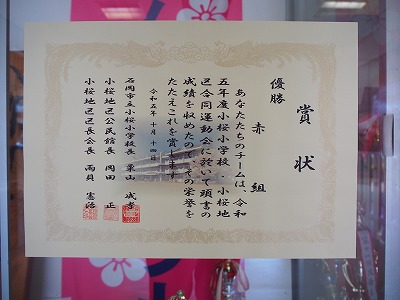 賞状
優勝
赤組
あなたたちのチームは、令和
五年度小桜小学校 小桜地
区合同運動会に於いて頭書の
成績を収めたので、その栄誉を
たたえこれを賞します
令和五年十月十四日
石岡市立小桜小学校長 栗山
小桜地区公民館長 岡田 正
小桜地区区長会長 両貝 憲治